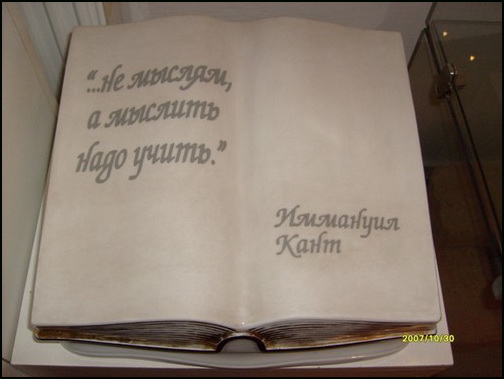 “...не мыслям,
а мыслить
надо учить.”
Иммануил
Кант
2007/10/30